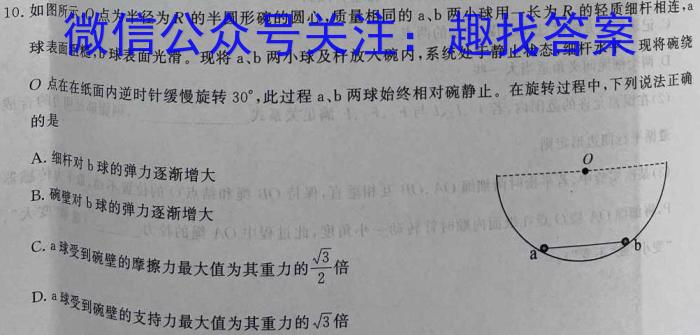 10. 如图所示,O点为半径为R的半圆形碗的圆心,质量相同的a、b两小球用一长为R的轻质细杆相连,a
微信公众号关注:趣找答案
球表面粗糙,b球表面光滑。现将a、b两小球及杆放入碗内,系统处于静止状态,细杆水平。现将碗绕
O点在在纸面内逆时针缓慢旋转30°,此过程a、b两球始终相对碗静止。在旋转过程中,下列说法正确
的是
A. 细杆对b球的弹力逐渐增大
B. 碗壁对b球的弹力逐渐增大
C. a球受到碗壁的摩擦力最大值为其重力的√3/2倍
D. a球受到碗壁的支持力最大值为其重力的√3倍
O
a
b